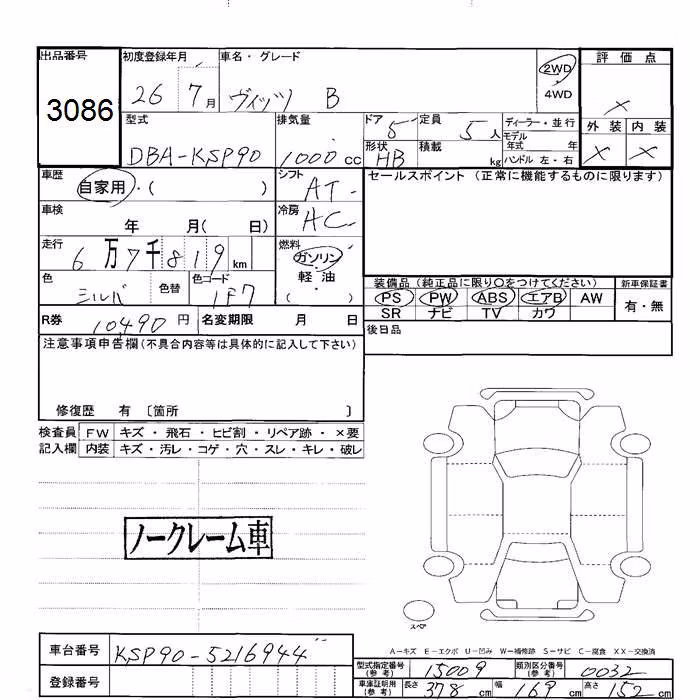 出品番号
3086
初度登録年月
26 7月
車名・グレード
ヴィッツ B
2WD
4WD
評価点
×
外装 内装
× ×
型式
DBA-KSP90
排気量
1000cc
ドア 5
定員 5人
形状 HB
積載 kg
ディーラー・並行
モデル年式 年
ハンドル 左・右
車歴
自家用・( )
シフト AT
セールスポイント (正常に機能するものに限ります)
車検
年 月( 日)
冷房 AC
走行
6万7千819km
燃料
ガソリン
軽油
( )
色
シルバ
色替
色コード
1F7
装備品(純正品に限り○をつけてください)
PS PW ABS エアB AW
SR ナビ TV カワ
新車保証書
有・無
R券 10,490円
名変期限 月 日
後日品
注意事項申告欄(不具合内容等は具体的に記入して下さい)
修復歴 有 〔箇所 〕
検査員 FW キズ・飛石・ヒビ割・リペア跡・×要
記入欄 内装 キズ・汚レ・コゲ・穴・スレ・キレ・破レ
ノークレーム車
スペア
A-キズ E-エクボ U-凹み W-補修跡 S-サビ C-腐食 XX-交換済
車台番号 KSP90-5216944
登録番号
型式指定番号(参考) 15009
類別区分番号(参考) 0032
車庫証明用(参考) 長さ 378cm 幅 169cm 高さ 152cm